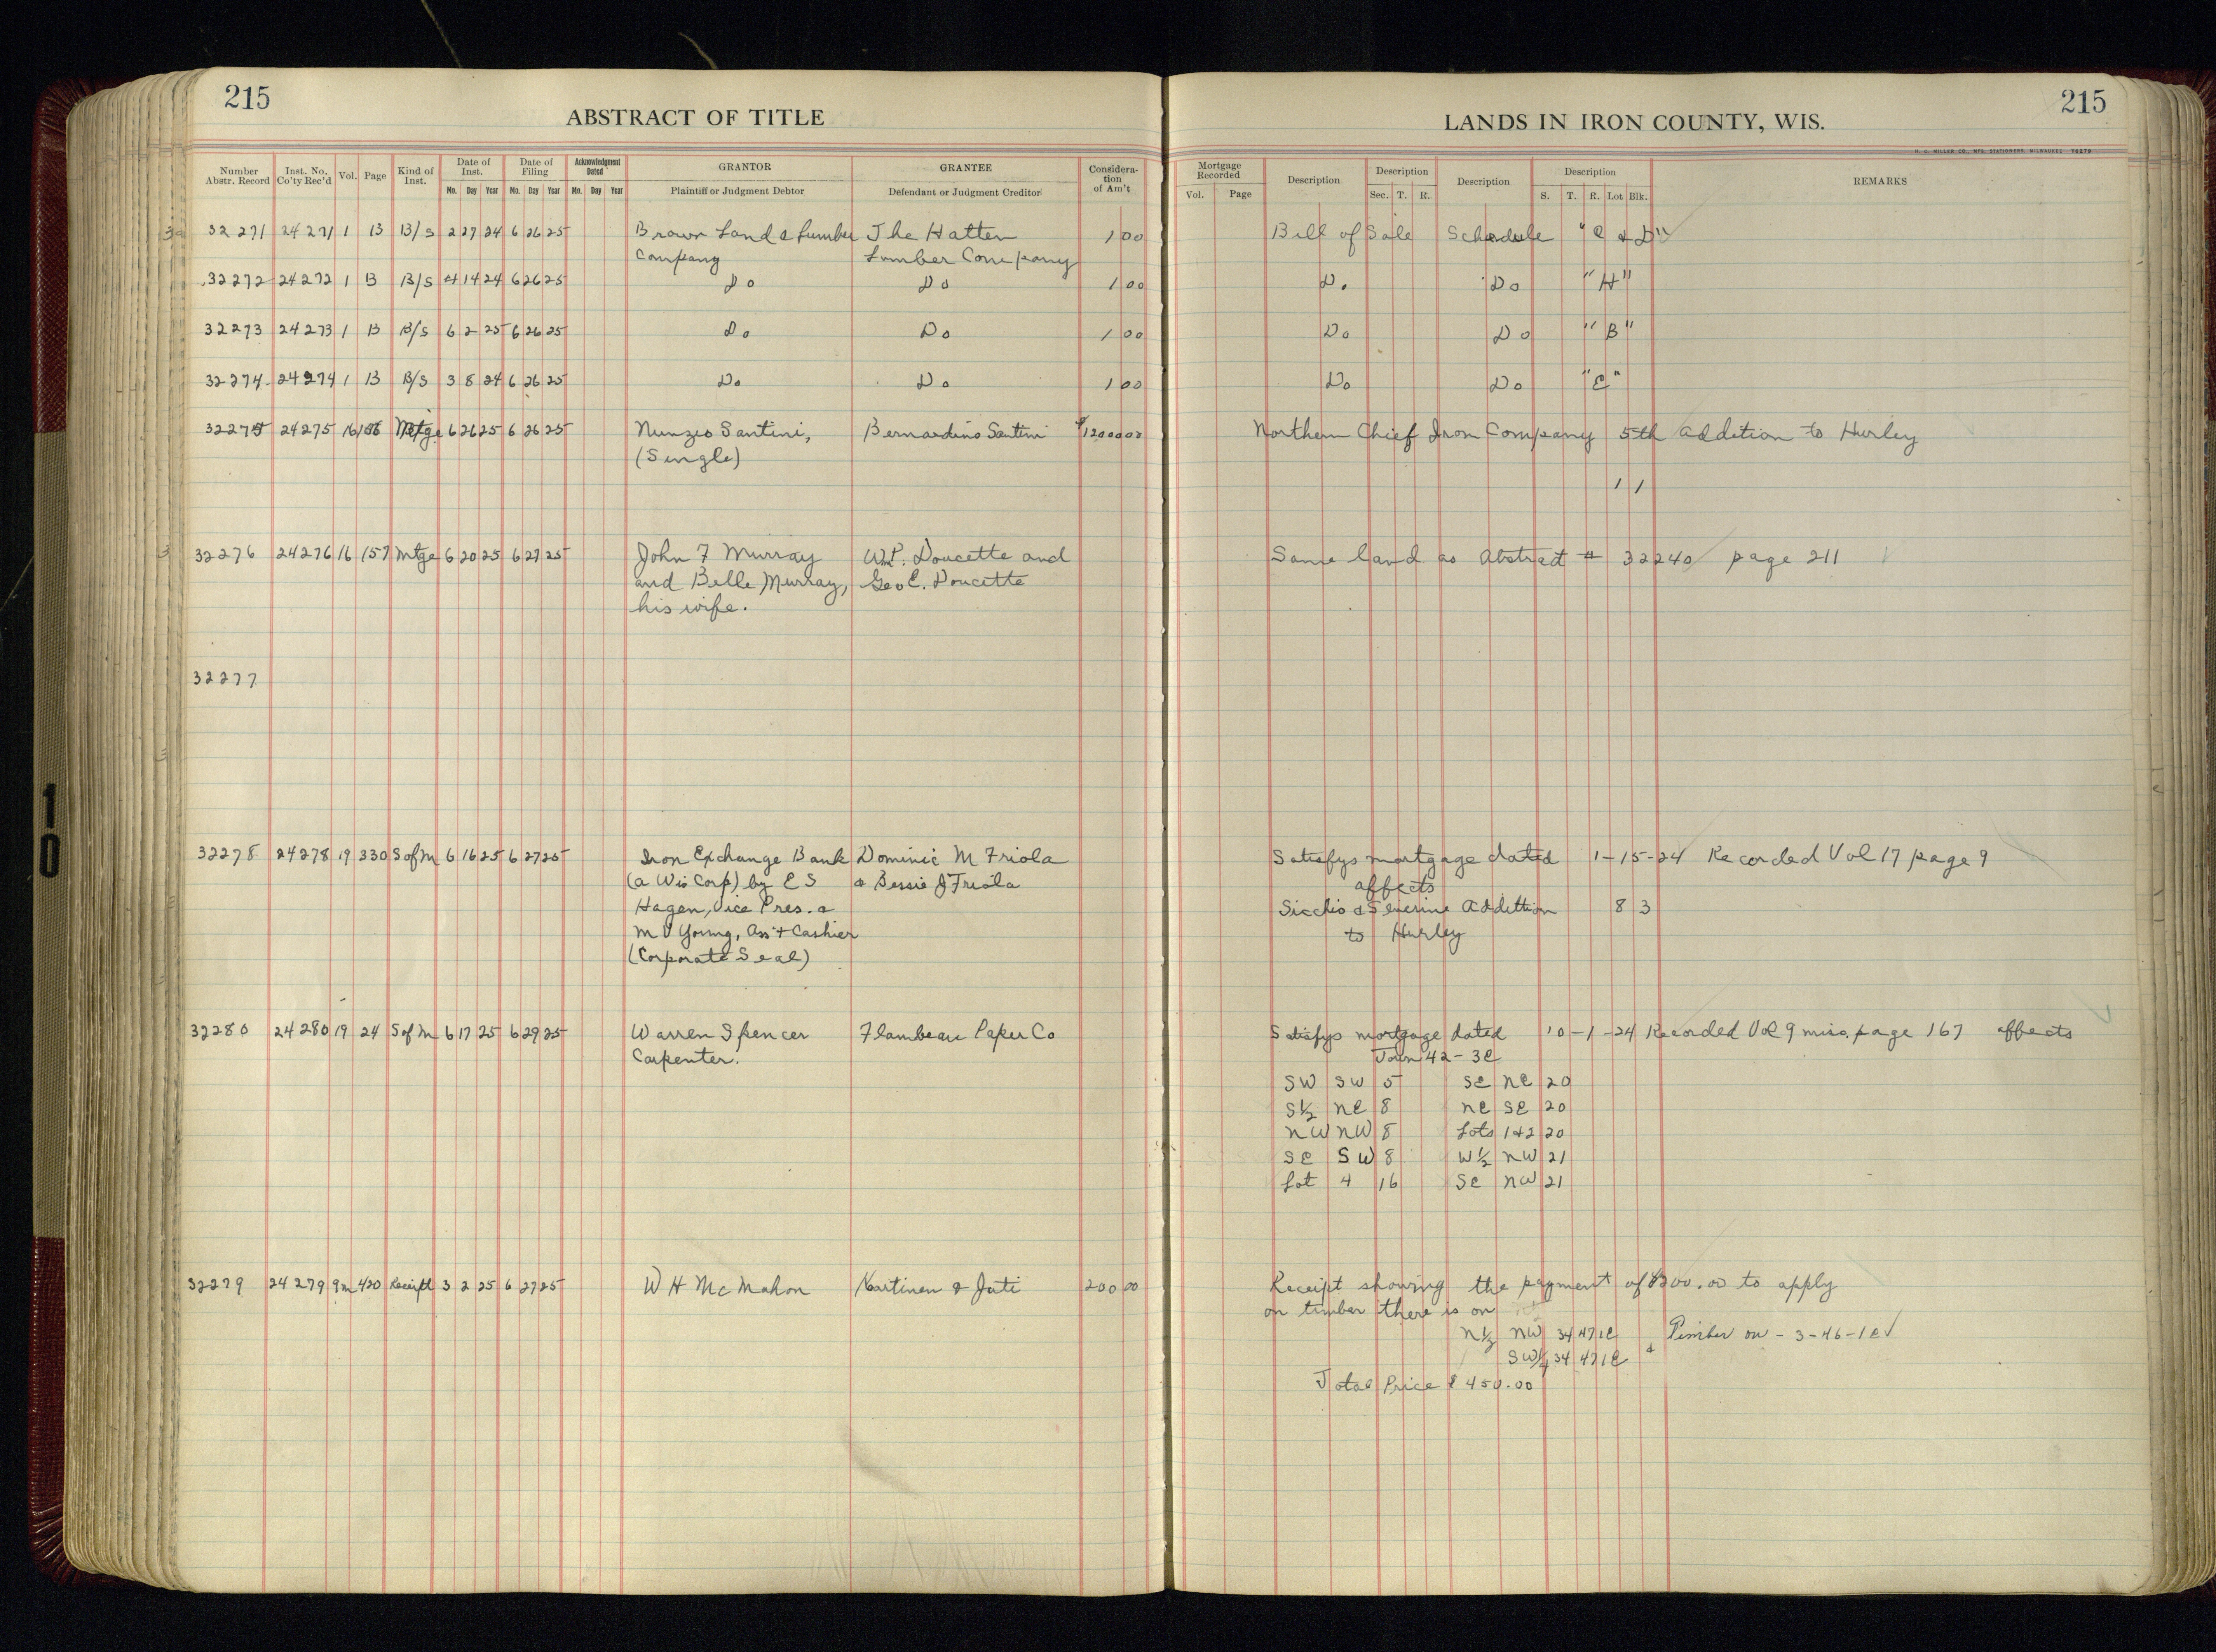 215
ABSTRACT OF TITLE
LANDS IN IRON COUNTY, WIS.
215
H. C. MILLER CO., MFG. STATIONERS, MILWAUKEE 76279
Number Abstr. Record | Inst. No. Co'ty Rec'd | Vol. | Page | Kind of Inst. | Date of Inst. | Date of Filing | Acknowledgment Dated | GRANTOR | GRANTEE | Consideration of Am't | Mortgage Recorded | Description | Description | Description | Description | REMARKS
Mo. Day Year | Mo. Day Year | Mo. Day Year | Plaintiff or Judgment Debtor | Defendant or Judgment Creditor | Vol. | Page | Sec. T. R. | S. T. R. Lot Blk.
32271 24271 1 13 B/S 2 27 24 6 26 25 Brown Land & Lumber The Hatten 1 00 Bill of Sale Schedule "C & D"
Company Lumber Company
32272 24272 1 13 B/S 4 14 24 6 26 25 Do Do 1 00 Do Do "H"
32273 24273 1 13 B/S 6 2 25 6 26 25 Do Do 1 00 Do Do "B"
32274 24274 1 13 B/S 3 8 24 6 26 25 Do Do 1 00 Do Do "E"
32275 24275 16 156 Mtge 6 26 25 6 26 25 Nunzio Santini, Bernardino Santini $1200 00 Northern Chief Iron Company 5th Addition to Hurley
(Single)
1 1
32276 24276 16 157 Mtge 6 20 25 6 27 25 John F Murray Wm P. Doucette and Same land as Abstract # 32240 page 211
and Belle Murray, Geo E. Doucette
his wife.
32277
32278 24278 19 330 S of M 6 16 25 6 27 25 Iron Exchange Bank Dominic M Friola Satisfys mortgage dated 1-15-24 Recorded Vol 17 page 9
(a Wis Corp) by E S & Bessie J Friola affects
Hagen, Vice Pres. & Sicchio & Severine Addittion 8 3
M V Young, Ass't Cashier to Hurley
(Corporate Seal)
32280 24280 19 24 S of M 6 17 25 6 29 25 Warren Spencer Flambeau Paper Co Satisfys mortgage dated 10-1-24 Recorded Vol 9 misc. page 167 affects
Carpenter. Town 42-3E
SW SW 5 SE NE 20
S½ NE 8 NE SE 20
NW NW 8 Lots 1+2 20
SE SW 8 W½ NW 21
Lot 4 16 SE NW 21
32279 24279 9m 420 Receipt 3 2 25 6 27 25 W H Mc Mahon Kartinen & Juti 200 00 Receipt showing the payment of $200.00 to apply
on timber there is on
N½ NW 34 47 1E & Timber on - 3-46-1E
SW¼ 34 47 1E
Total Price $450.00
10